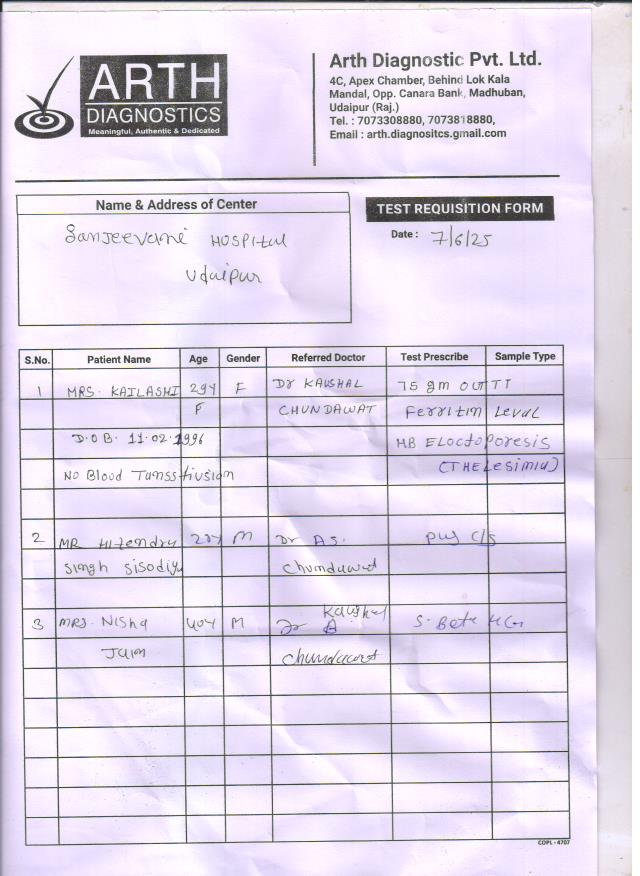 ARTH
DIAGNOSTICS
Meaningful, Authentic & Dedicated
Arth Diagnostic Pvt. Ltd.
4C, Apex Chamber, Behind Lok Kala
Mandal, Opp. Canara Bank, Madhuban,
Udaipur (Raj.)
Tel. : 7073308880, 7073818880,
Email : arth.diagnositcs.gmail.com
Name & Address of Center
Sanjeevani HOSPItal
Udaipur
TEST REQUISITION FORM
Date : 7/6/25
S.No. Patient Name Age Gender Referred Doctor Test Prescribe Sample Type
1 MRS. KAILASHI 29Y F Dr KAUSHAL 75 gm OGTT
F CHUNDAWAT Ferritin Leval
D.O.B. 11.02.1996 HB ELoctoporesis
No Blood Tansstivsion (THELesimia)
2 MR Hitendra 22Y M Dr A.S. pus C/s
Singh Sisodiya Chundawat
3 MRS. Nisha 40Y M Dr Kaushal S. Beta HCG
Jain Chundawat
COPL - 4707